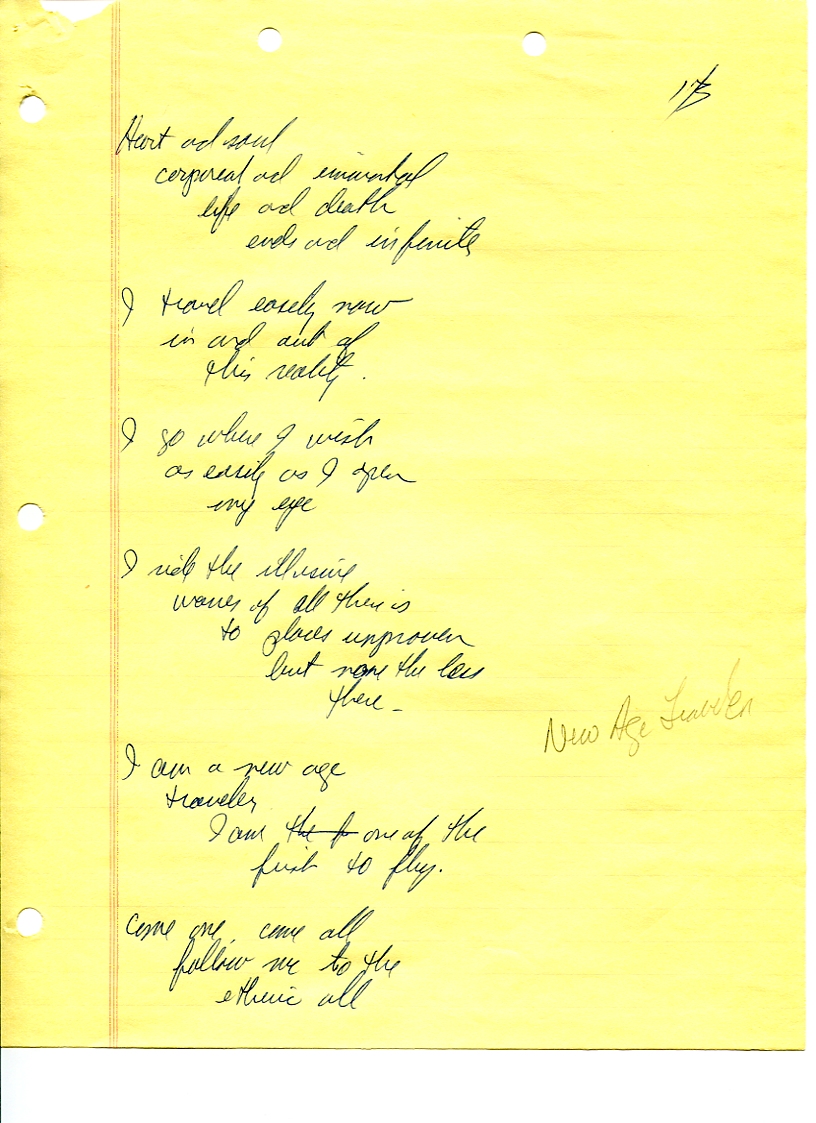 173
Heart and soul
corporeal and immortal
life and death
ends and infinite
I travel easily now
in and out of
this reality.
I go where I wish
as easily as I open
my eye
I ride the illusive
waves of all there is
to places unproven
but none the less
there -
New Age Traveler
I am a new age
traveler
I am the f one of the
first to fly.
Come one, come all
follow me to the
etheric all